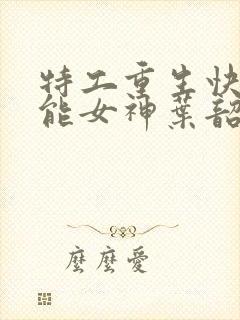 特工重生快
能女神葉韶
麼麼愛